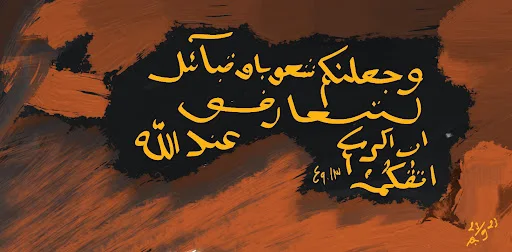 وجعلنكم شعوبا وقبآئل
لتعارفو
ان اكرمكم عند الله
اتقكم ٤٩.١٣